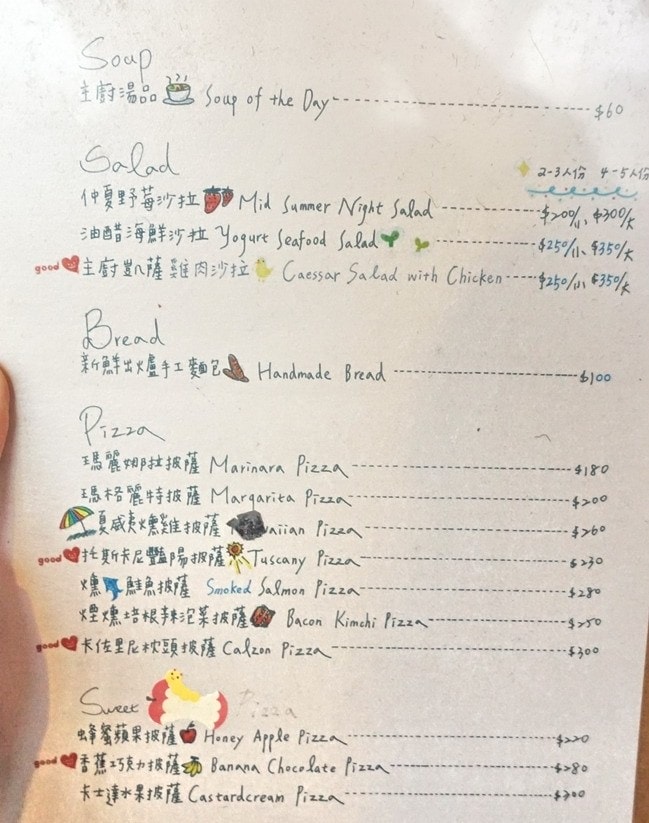 Soup
主廚湯品 Soup of the Day $60
Salad
2-3人份 4-5人份
仲夏野莓沙拉 Mid Summer Night Salad $200/小、$300/大
油醋海鮮沙拉 Yogurt Seafood Salad $250/小、$350/大
good 主廚凱薩雞肉沙拉 Caessar Salad with Chicken $250/小 $350/大
Bread
新鮮出爐手工麵包 Handmade Bread $100
Pizza
瑪麗娜拉披薩 Marinara Pizza $180
瑪格麗特披薩 Margarita Pizza $200
夏威夷燻雞披薩 waiian Pizza $260
good 托斯卡尼豔陽披薩 Tuscany Pizza $230
燻鮭魚披薩 Smoked Salmon Pizza $280
煙燻培根辣泡菜披薩 Bacon Kimchi Pizza $250
good 卡佐里尼枕頭披薩 Calzon Pizza $300
Sweet Pizza
蜂蜜蘋果披薩 Honey Apple Pizza $220
good 香蕉巧克力披薩 Banana Chocolate Pizza $280
卡士達水果披薩 Castardcream Pizza $300